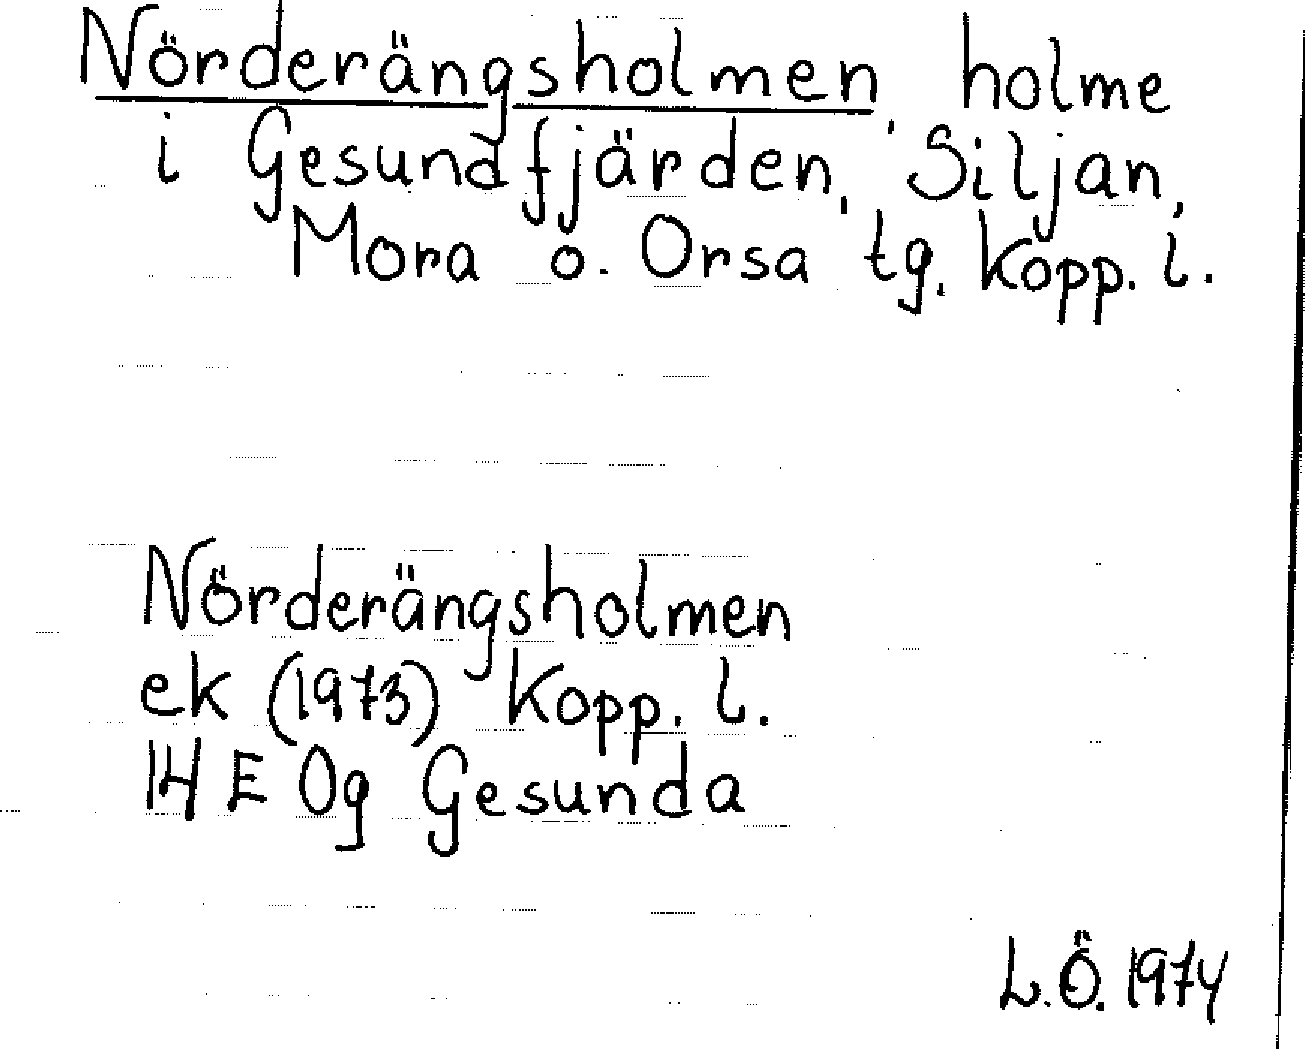 Nörderängsholmen, holme
i Gesundfjärden, Siljan,
Mora o. Orsa tg, Kopp. l.
Nörderängsholmen
ek (1973) Kopp. l.
14 E 0g Gesunda
L.Ö. 1974